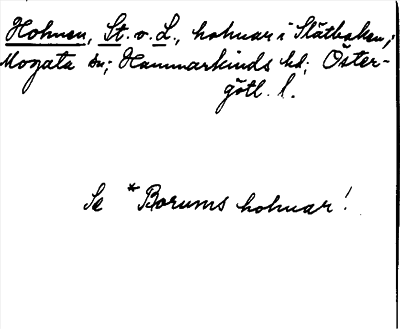 Holmen, St. o. L., holmar i Slätbaken;
Mogata sn; Hammarkinds hd; Öster-
götl. l.
Se *Borums holmar!